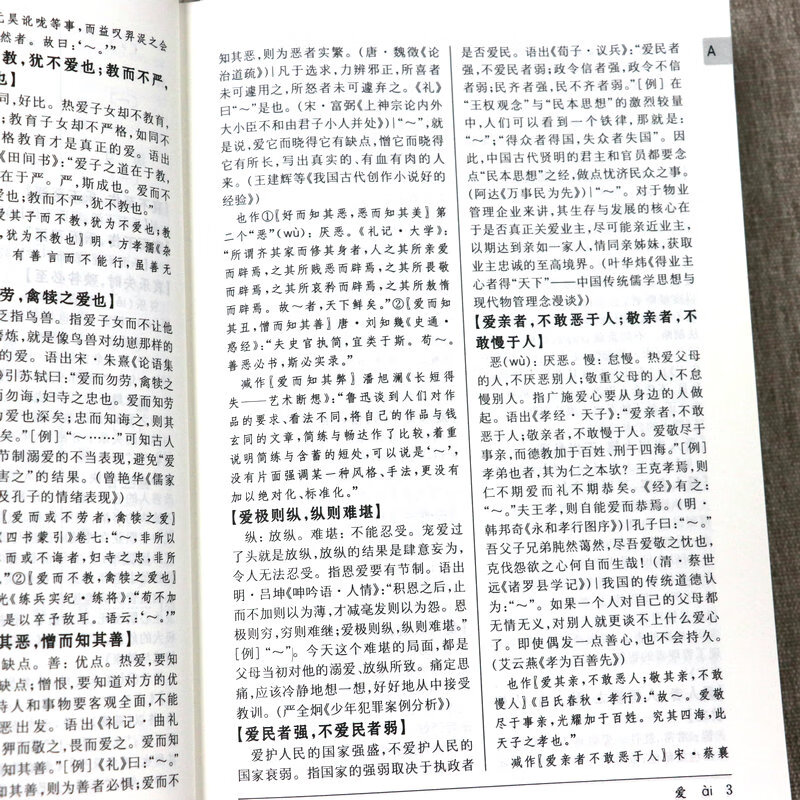 元昊说咙等事,而益叹羿浞之会
然者。故曰:‘~。’”
教,犹不爱也;教而不严,
也】
同,好比。热爱子女却不教育,
;教育子女却不严格,如同不
格教育才是真正的爱。语出
《田间书》:“爱子之道在于教,
在于严。严,斯成也。爱而不
爱也;教而不严,犹不教也。”
爱其子而不教,犹为不爱也;教
,犹为不教也〗明·方孝孺《杂
有善言而不能行,虽善无
劳,禽犊之爱也】
泛指鸟兽。指爱子女而不让他
磨炼,就是像鸟兽对幼崽那样的
的爱。语出宋·朱熹《论语集
》引苏轼曰:“爱而勿劳,禽犊之
而勿诲,妇寺之忠也。爱而知劳
为爱也深矣;忠而知诲之,则其
矣。”[例]“~……”可知古人
节制溺爱的不当表现,避免“爱
害之”的结果。(曾艳华《儒家
及孔子的情绪表现》)
〖爱而或不劳者,禽犊之爱〗
《四书蒙引》卷七:“~,非所以
而或不诲者,妇寺之忠,非所
。”②〖爱而不教,禽犊之爱也〗
光《练兵实纪·练将》:“苟不加
是以卒予敌耳。语云:‘~。’”
其恶,憎而知其善】
缺点。善:优点。热爱,要知
缺点;憎恨,要知道对方的优
待人和事物要客观全面,不能
恶出发。语出《礼记·曲礼
狎而敬之,畏而爱之。爱而知
知其善。”[例]《礼》曰:“~。”
其善,则为善者必惧;爱而不
知其恶,则为恶者实繁。(唐·魏徵《论
治道疏》)|凡于选求,力辨邪正,所喜者
未可遽用之,所怒者未可遽弃之。《礼》
曰“~”是也。(宋·富弼《上神宗论内外
大小臣不和由君子小人并处》)|“~”,就
是说,爱它而晓得它有缺点,憎它而晓得
它有所长,写出真实的、有血有肉的人
来。(王建辉等《我国古代创作小说好的
经验》)
也作①〖好而知其恶,恶而知其美〗第
二个“恶”(wù):厌恶。《礼记·大学》:
“所谓齐其家而修其身者,人之其所亲爱
而辟焉,之其所贱恶而辟焉,之其所畏敬
而辟焉,之其所哀矜而辟焉,之其所敖惰
而辟焉。故~者,天下鲜矣。”②〖爱而知
其丑,憎而知其善〗唐·刘知幾《史通·
惑经》:“夫史官执简,宜类于斯。苟~。
善恶必书,斯必实录。”
减作〖爱而知其弊〗潘旭澜《长短得
失——艺术断想》:“鲁迅谈到人们对作
品的要求、看法不同,将自己的作品与钱
玄同的文章,简练与畅达作了比较,着重
说明简练与含蓄的短处,可以说是‘~’,
没有片面强调某一种风格、手法,更没有
加以绝对化、标准化。”
【爱极则纵,纵则难堪】
纵:放纵。难堪:不能忍受。宠爱过
了头就是放纵,放纵的结果是肆意妄为,
令人无法忍受。指恩爱要有节制。语出
明·吕坤《呻吟语·人情》:“积恩之后,止
而不加则以为薄,才减毫发则以为怨。恩
极则穷,穷则难继;爱极则纵,纵则难堪。”
[例]“~”。今天这个难堪的局面,都是
父母当初对他的溺爱、放纵所致。痛定思
痛,应该冷静地想一想,好好地从中接受
教训。(严全炯《少年犯罪案例分析》)
【爱民者强,不爱民者弱】
爱护人民的国家强盛,不爱护人民的
国家衰弱。指国家的强弱取决于执政者
是否爱民。语出《荀子·议兵》:“爱民者
强,不爱民者弱;政令信者强,政令不信
者弱;民齐者强,民不齐者弱。”[例]在
“王权观念”与“民本思想”的激烈较量
中,人们可以看到一个铁律,那就是:
“~”;“得众者得国,失众者失国”。因
此,中国古代贤明的君主和官员都要念
点“民本思想”之经,做点忧济民众之事。
(阿达《万事民为先》)|“~”。对于物业
管理企业来讲,其生存与发展的核心在
于是否真正关爱业主,尽可能亲近业主,
以期达到亲如一家人,情同亲姊妹,获取
业主忠诚的至高境界。(叶华炜《得业主
心者得“天下”——中国传统儒学思想与
现代物管理念漫谈》)
【爱亲者,不敢恶于人;敬亲者,不
敢慢于人】
恶(wù):厌恶。慢:怠慢。热爱父母
的人,不厌恶别人;敬重父母的人,不怠
慢别人。指广施爱心要从身边的人做
起。语出《孝经·天子》:“爱亲者,不敢
恶于人;敬亲者,不敢慢于人。爱敬尽于
事亲,而德教加于百姓、刑于四海。”[例]
孝弟也者,其为仁之本欤?王克孝焉,则
仁不期爱而礼不期恭矣。《经》有之:
“~。”夫王孝,则自能爱而恭焉。(明·
韩邦奇《永和孝行图序》)|孔子曰:“~。”
吾父子兄弟肫然蔼然,尽吾爱敬之忱也,
克伐怨欲之心何自而生哉!(清·蔡世
远《诸罗县学记》)|我国的传统道德认
为:“~”。如果一个人对自己的父母都
无情无义,对别人就更谈不上什么爱心
了。即使偶发一点善心,也不会持久。
(艾云燕《孝为百善先》)
也作〖爱其亲,不敢恶人;敬其亲,不敢
慢人〗《吕氏春秋·孝行》:“故~。爱敬
尽于事亲,光耀加于百姓。究其四海,此
天子之孝也。”
减作〖爱亲者不敢恶于人〗宋·蔡襄
A
爱 ài 3